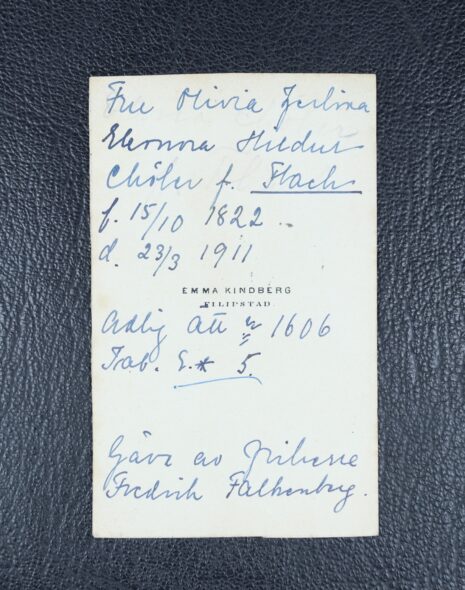 Fru Olivia Jerlina
Eleonora Hildur
Chöler f. Flach
f. 15/10 1822
d. 23/3 1911
EMMA KINDBERG
FILIPSTAD.
Adlig Ätt nr 1606
Tab. 5.
Gåva av Friherre
Fredrik Falkenberg.